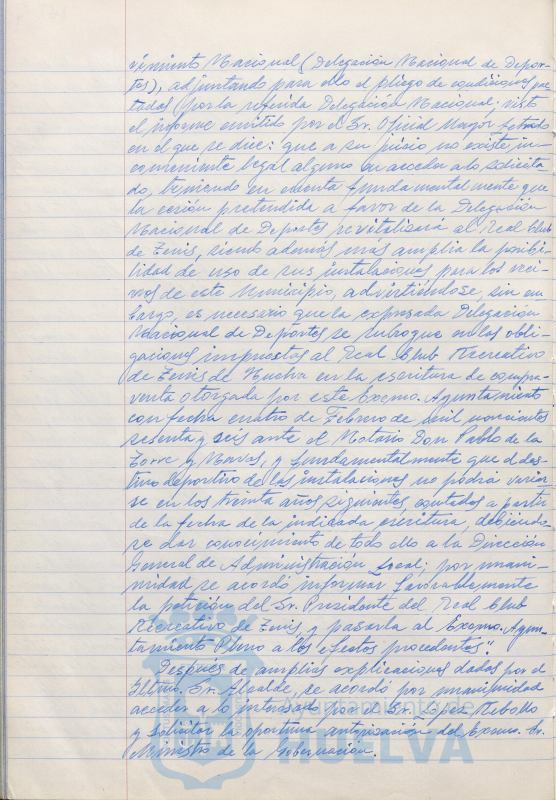 vimiento Nacional (Delegación Nacional de Depor-
tes), adjuntando para ello el pliego de condiciones pac
tadas por la referida Delegación Nacional; visto
el informe emitido por el Sr. Oficial Mayor Letrado
en el que se dice: que a su juicio no existe in-
conveniente legal alguno en acceder a lo solicita-
do, teniendo en cuenta fundamentalmente que
la cesión pretendida a favor de la Delegación
Nacional de Deportes revitalizará al Real Club
de Tenis, siendo además más amplia la posibi-
lidad de uso de sus instalaciones para los veci-
nos de este Municipio, advirtiéndose, sin em
bargo, es necesario que la expresada Delegación
Nacional de Deportes se subrogue en las obli-
gaciones impuestas al Real Club Recreativo
de Tenis de Huelva en la escritura de compra-
venta otorgada por este Excmo. Ayuntamiento
con fecha cuatro de Febrero de mil novecientos
sesenta y seis ante el Notario Don Pablo de la
Torre y Navas, y fundamentalmente que el des-
tino deportivo de las instalaciones no podrá variar
se en los treinta años siguientes contados a partir
de la fecha de la indicada escritura, debiendo
se dar conocimiento de todo ello a la Dirección
General de Administración Local; por unani-
midad se acordó informar favorablemente
la petición del Sr. Presidente del Real Club
Recreativo de Tenis y pasarla al Excmo. Ayun-
tamiento Pleno a los efectos procedentes".
Después de amplias explicaciones dadas por el
Iltmo. Sr. Alcalde, se acordó por unanimidad
acceder a lo interesado por el Sr. López Rebollo
y solicitar la oportuna autorización del Excmo. Sr.
Ministro de la Gobernación.
Ayuntamiento de
HUELVA